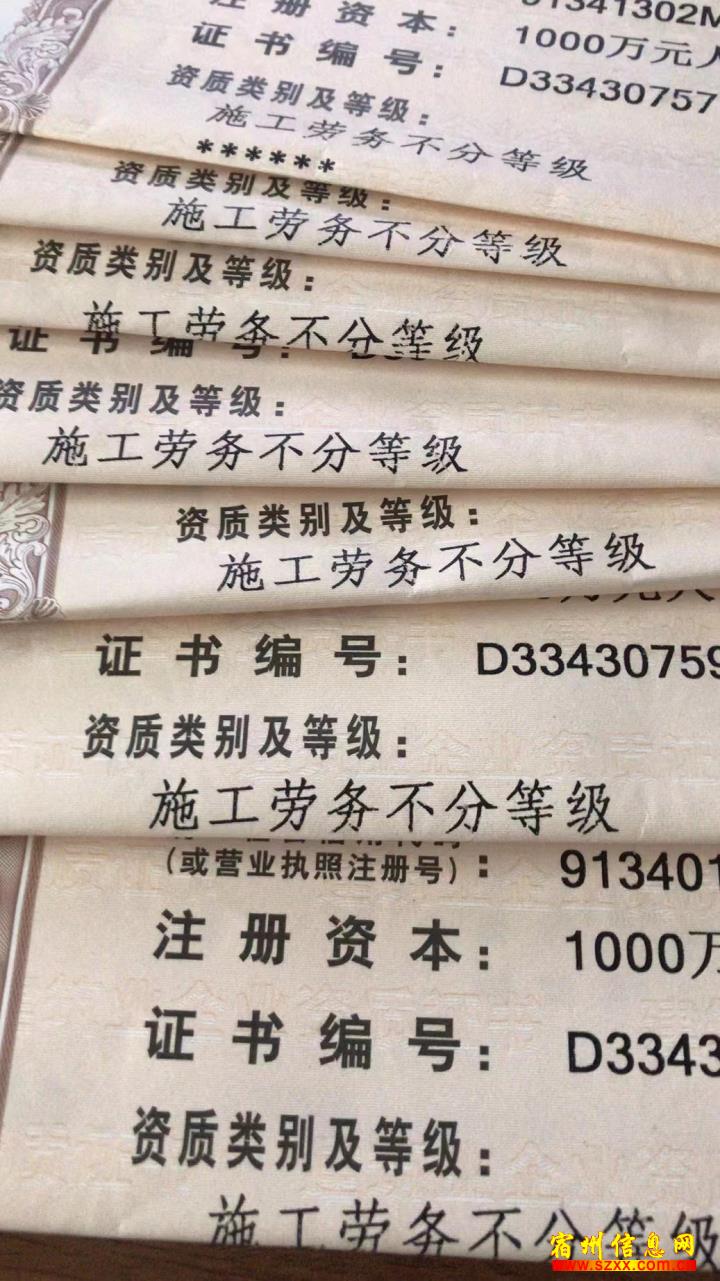 91341302M
注册资本：
1000万元人
证书编号：
D33430757
资质类别及等级：
施工劳务不分等级
******
资质类别及等级：
施工劳务不分等级
资质类别及等级：
施工劳务不分等级
证书编号：
资质类别及等级：
施工劳务不分等级
资质类别及等级：
施工劳务不分等级
万元人
证书编号：
D33430759
资质类别及等级：
施工劳务不分等级
(或营业执照注册号)：
913401
注册资本：
1000万
证书编号：
D3343
资质类别及等级：
施工劳务不分等级
宿州信息网
www.szxx.com.cn